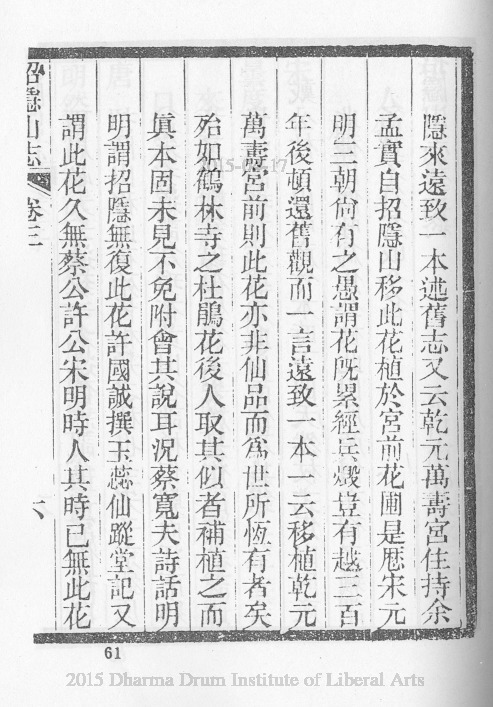 隱來遠致一本述舊志又云乾元萬壽宮住持余
孟實自招隱山移此花植於宮前花圃是歷宋元
明三朝尙有之愚謂花旣累經兵燬豈有越三百
年後頓還舊觀而一言遠致一本一云移植乾元
萬壽宮前則此花亦非仙品而爲世所恆有者矣
殆如鶴林寺之杜鵑花後人取其似者補植之而
眞本固未見不免附會其說耳況蔡寬夫詩話明
明謂招隱無復此花許國誠撰玉蕊仙蹤堂記又
謂此花久無蔡公許公宋明時人其時已無此花
招隱山志
卷三
六
61
2015-03-17
2015 Dharma Drum Institute of Liberal Arts